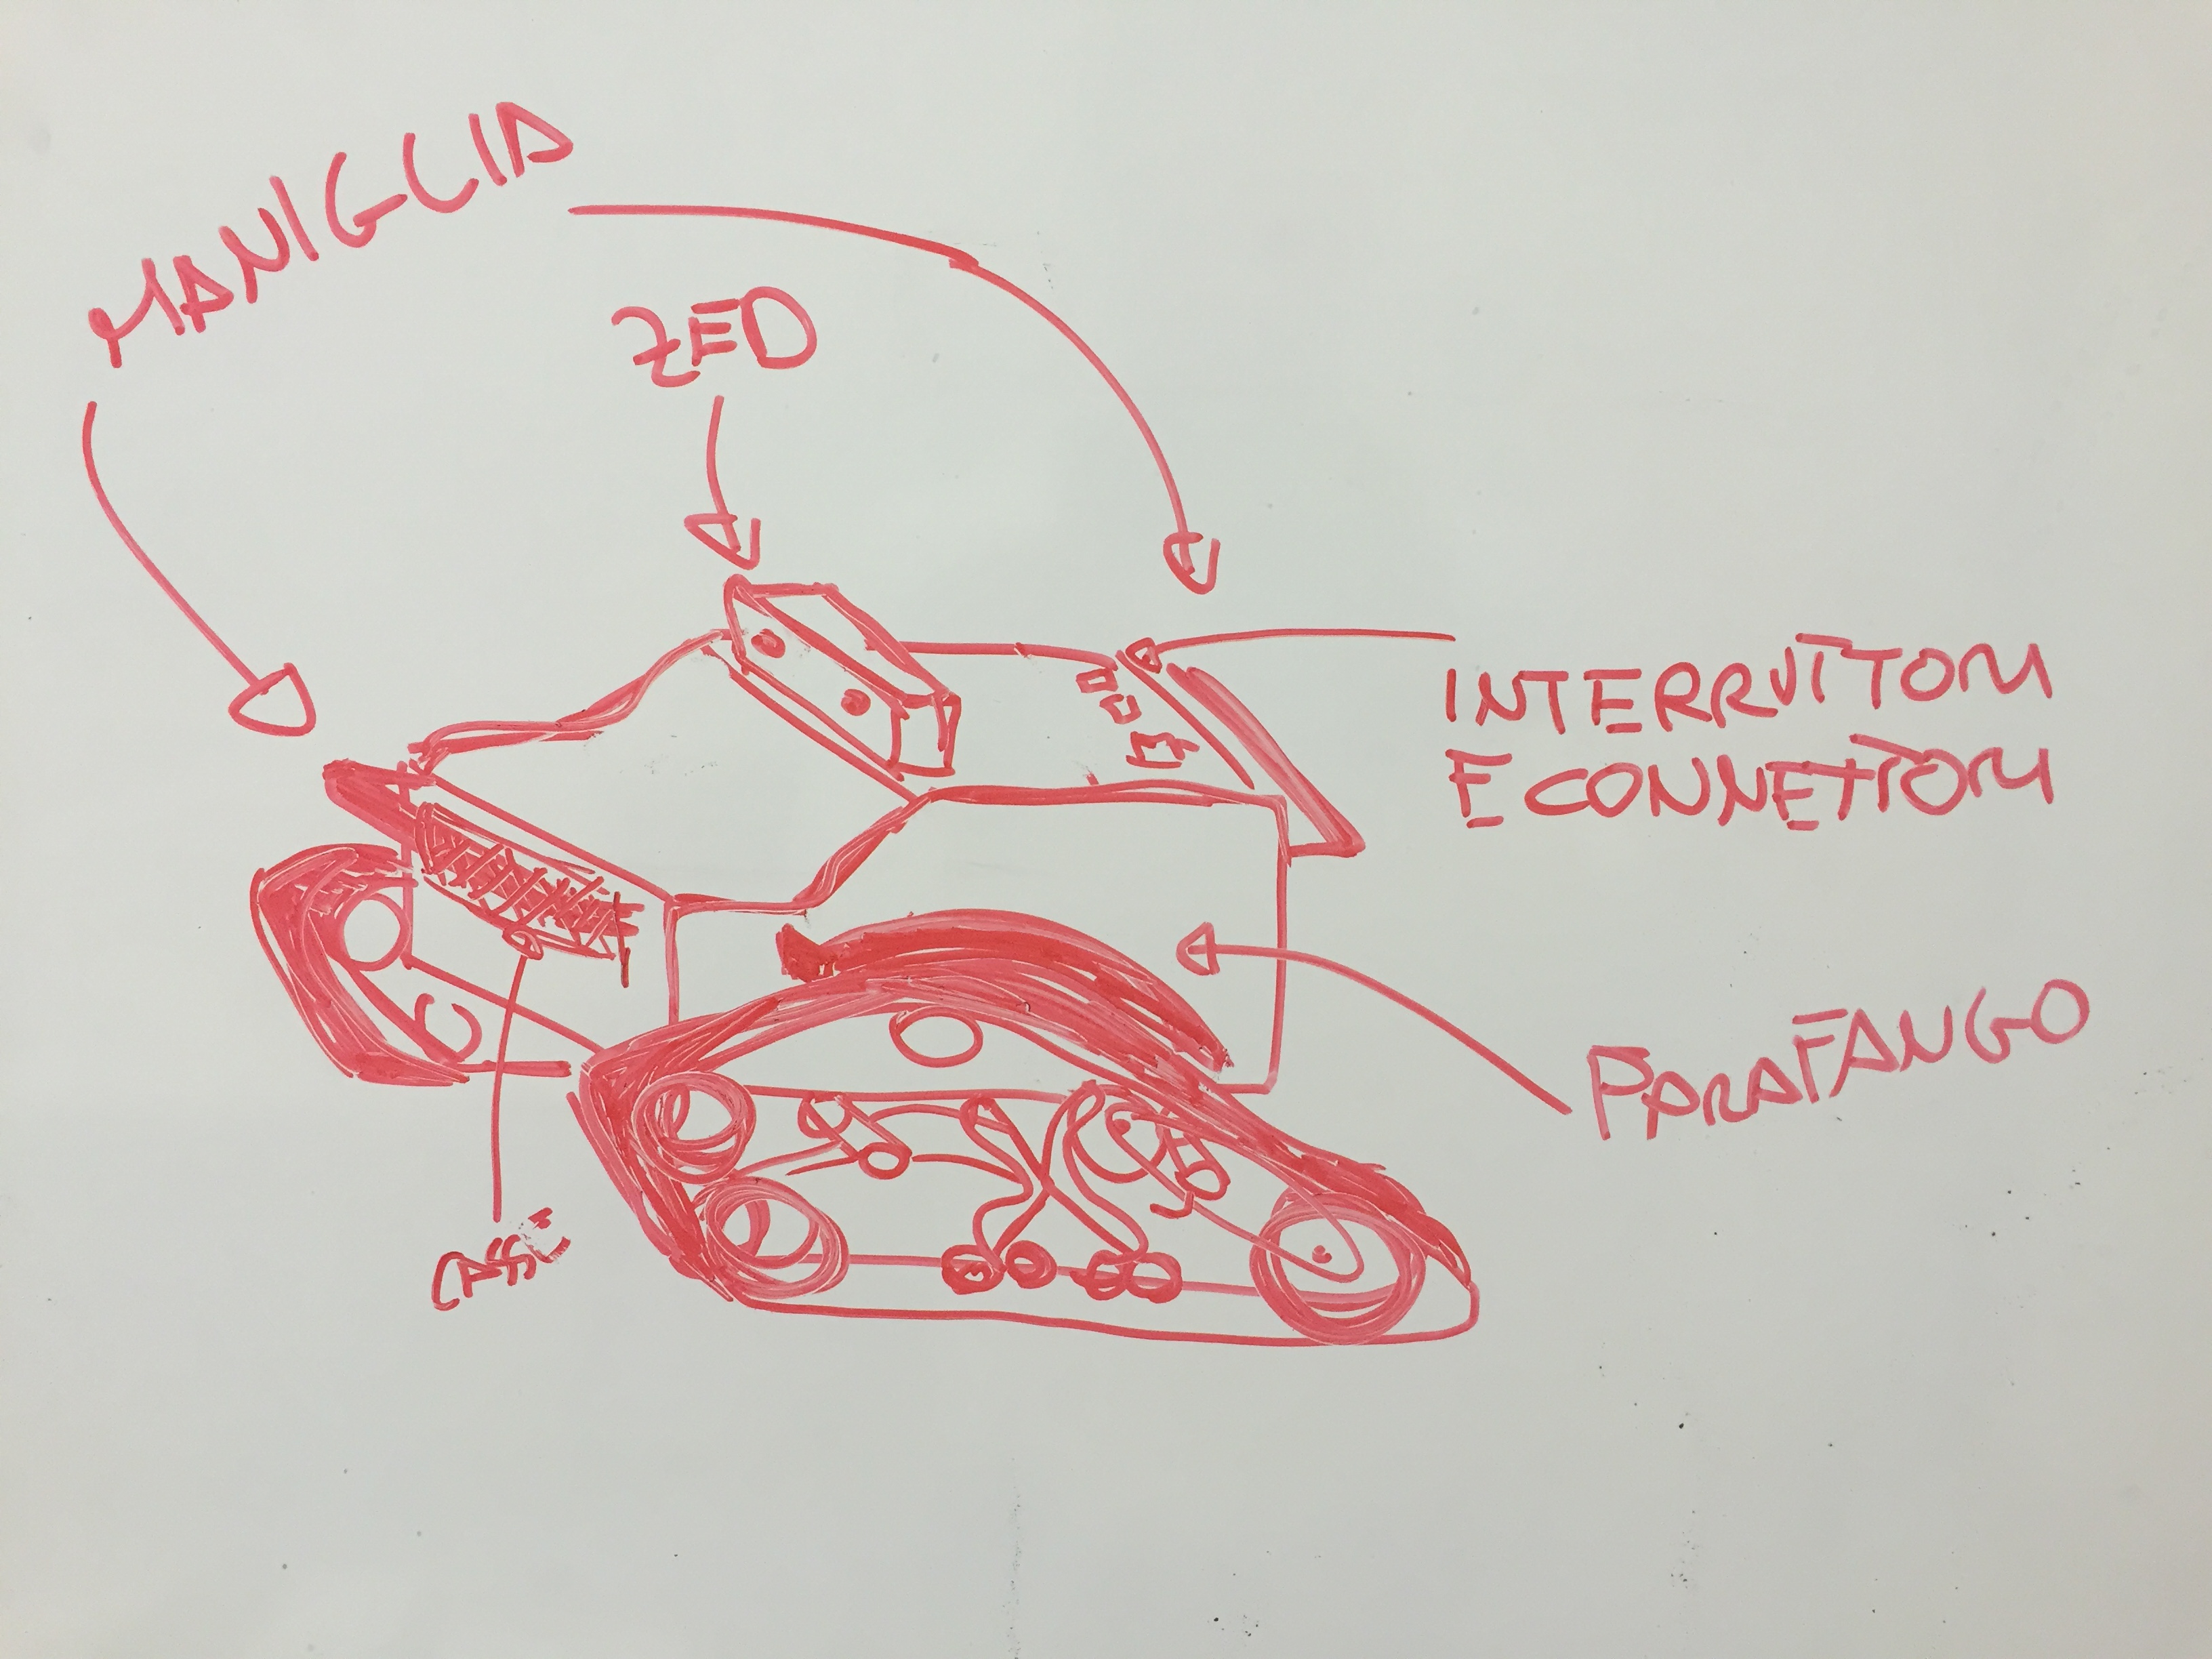 MANIGLIA
ZED
INTERRUTTORI
E CONNETTORI
PARAFANGO
CASSE